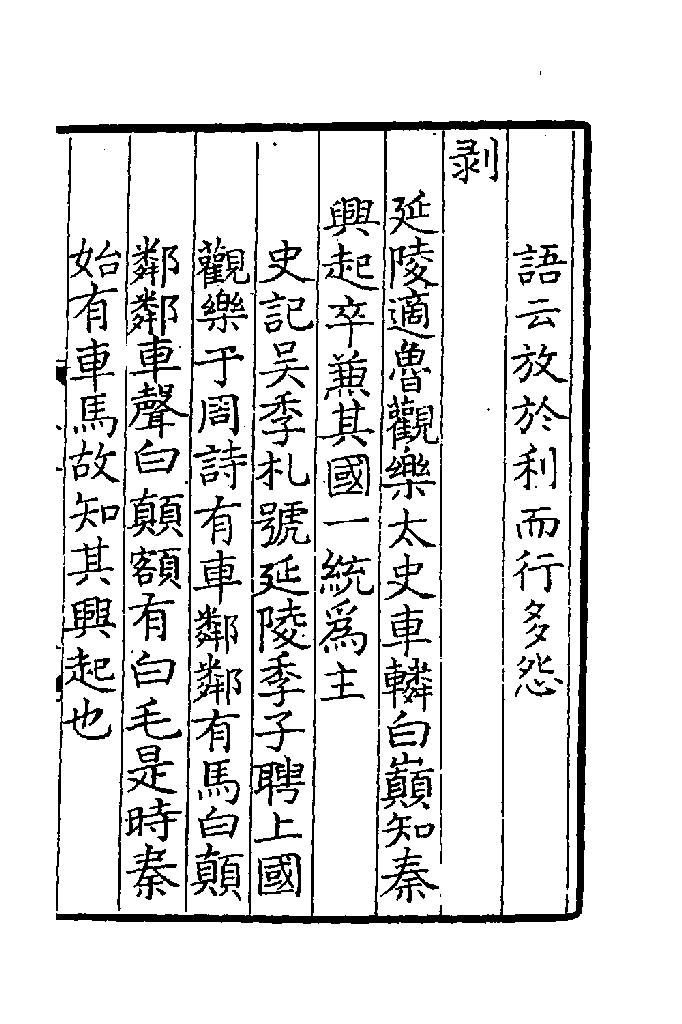 語云放於利而行多怨
剥
延陵適魯觀樂太史車轔白巔知秦
興起卒兼其國一統爲主
史記吴季札號延陵季子聘上國
觀樂于周詩有車鄰鄰有馬白顛
鄰鄰車聲白顛額有白毛是時秦
始有車馬故知其興起也